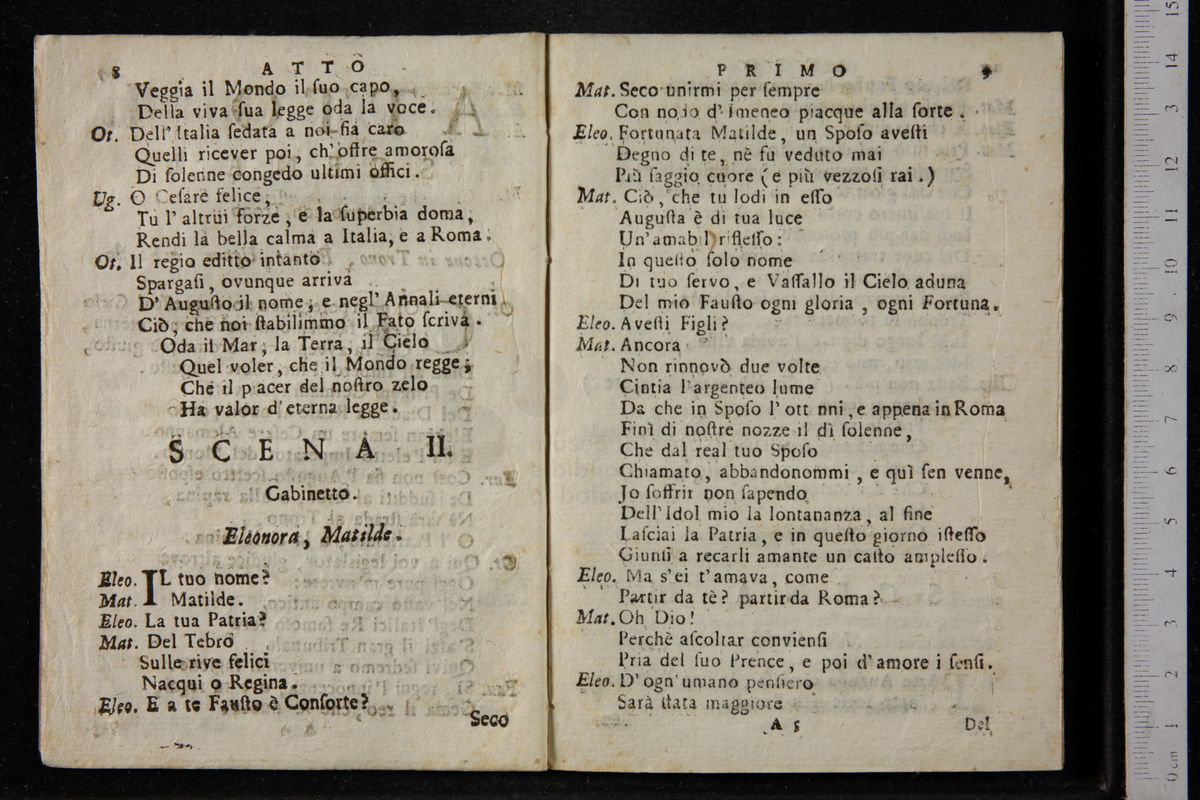 8 ATTO
Veggia il Mondo il ſuo capo,
Della viva ſua legge oda la voce.
Ot. Dell' Italia ſedata a noi fia caro
Quelli ricever poi, ch' offre amoroſa
Di ſolenne congedo ultimi offici.
Ug. O Ceſare felice,
Tu l' altrui forze, e la ſuperbia doma,
Rendi la bella calma a Italia, e a Roma.
Ot. Il regio editto intanto
Spargaſi, ovunque arriva
D' Auguſto il nome, e negl' Annali eterni
Ciò, che noi ſtabilimmo il Fato ſcriva.
Oda il Mar, la Terra, il Cielo
Quel voler, che il Mondo regge;
Che il p acer del noſtro zelo
Ha valor d' eterna legge.
SCENA II.
Gabinetto.
Eleonora, Matilde.
Eleo. IL tuo nome?
Mat. Matilde.
Eleo. La tua Patria?
Mat. Del Tebro
Sulle rive felici
Nacqui o Regina.
Eleo. E a te Fauſto è Conſorte?
Seco
PRIMO 9
Mat. Seco unirmi per ſempre
Con nodo d' Imeneo piacque alla ſorte.
Eleo. Fortunata Matilde, un Spoſo aveſti
Degno di te, nè fu veduto mai
Più ſaggio cuore (e più vezzoſi rai.)
Mat. Ciò, che tu lodi in eſſo
Auguſta è di tua luce
Un' amabil rifleſſo:
In queſto ſolo nome
Di tuo ſervo, e Vaſſallo il Cielo aduna
Del mio Fauſto ogni gloria, ogni Fortuna.
Eleo. Aveſti Figli?
Mat. Ancora
Non rinnovò due volte
Cintia l' argenteo lume
Da che in Spoſo l' ott nni, e appena in Roma
Finì di noſtre nozze il dì ſolenne,
Che dal real tuo Spoſo
Chiamato, abbandonommi, e quì ſen venne,
Jo ſoffrir non ſapendo
Dell' Idol mio la lontananza, al fine
Laſciai la Patria, e in queſto giorno iſteſſo
Giunſi a recarli amante un caſto ampleſſo.
Eleo. Ma s' ei t' amava, come
Partir da tè? partir da Roma?
Mat. Oh Dio!
Perchè aſcoltar convienſi
Pria del ſuo Prence, e poi d' amore i ſenſi.
Eleo. D' ogn' umano penſiero
Sarà ſtata maggiore
A 5 Del